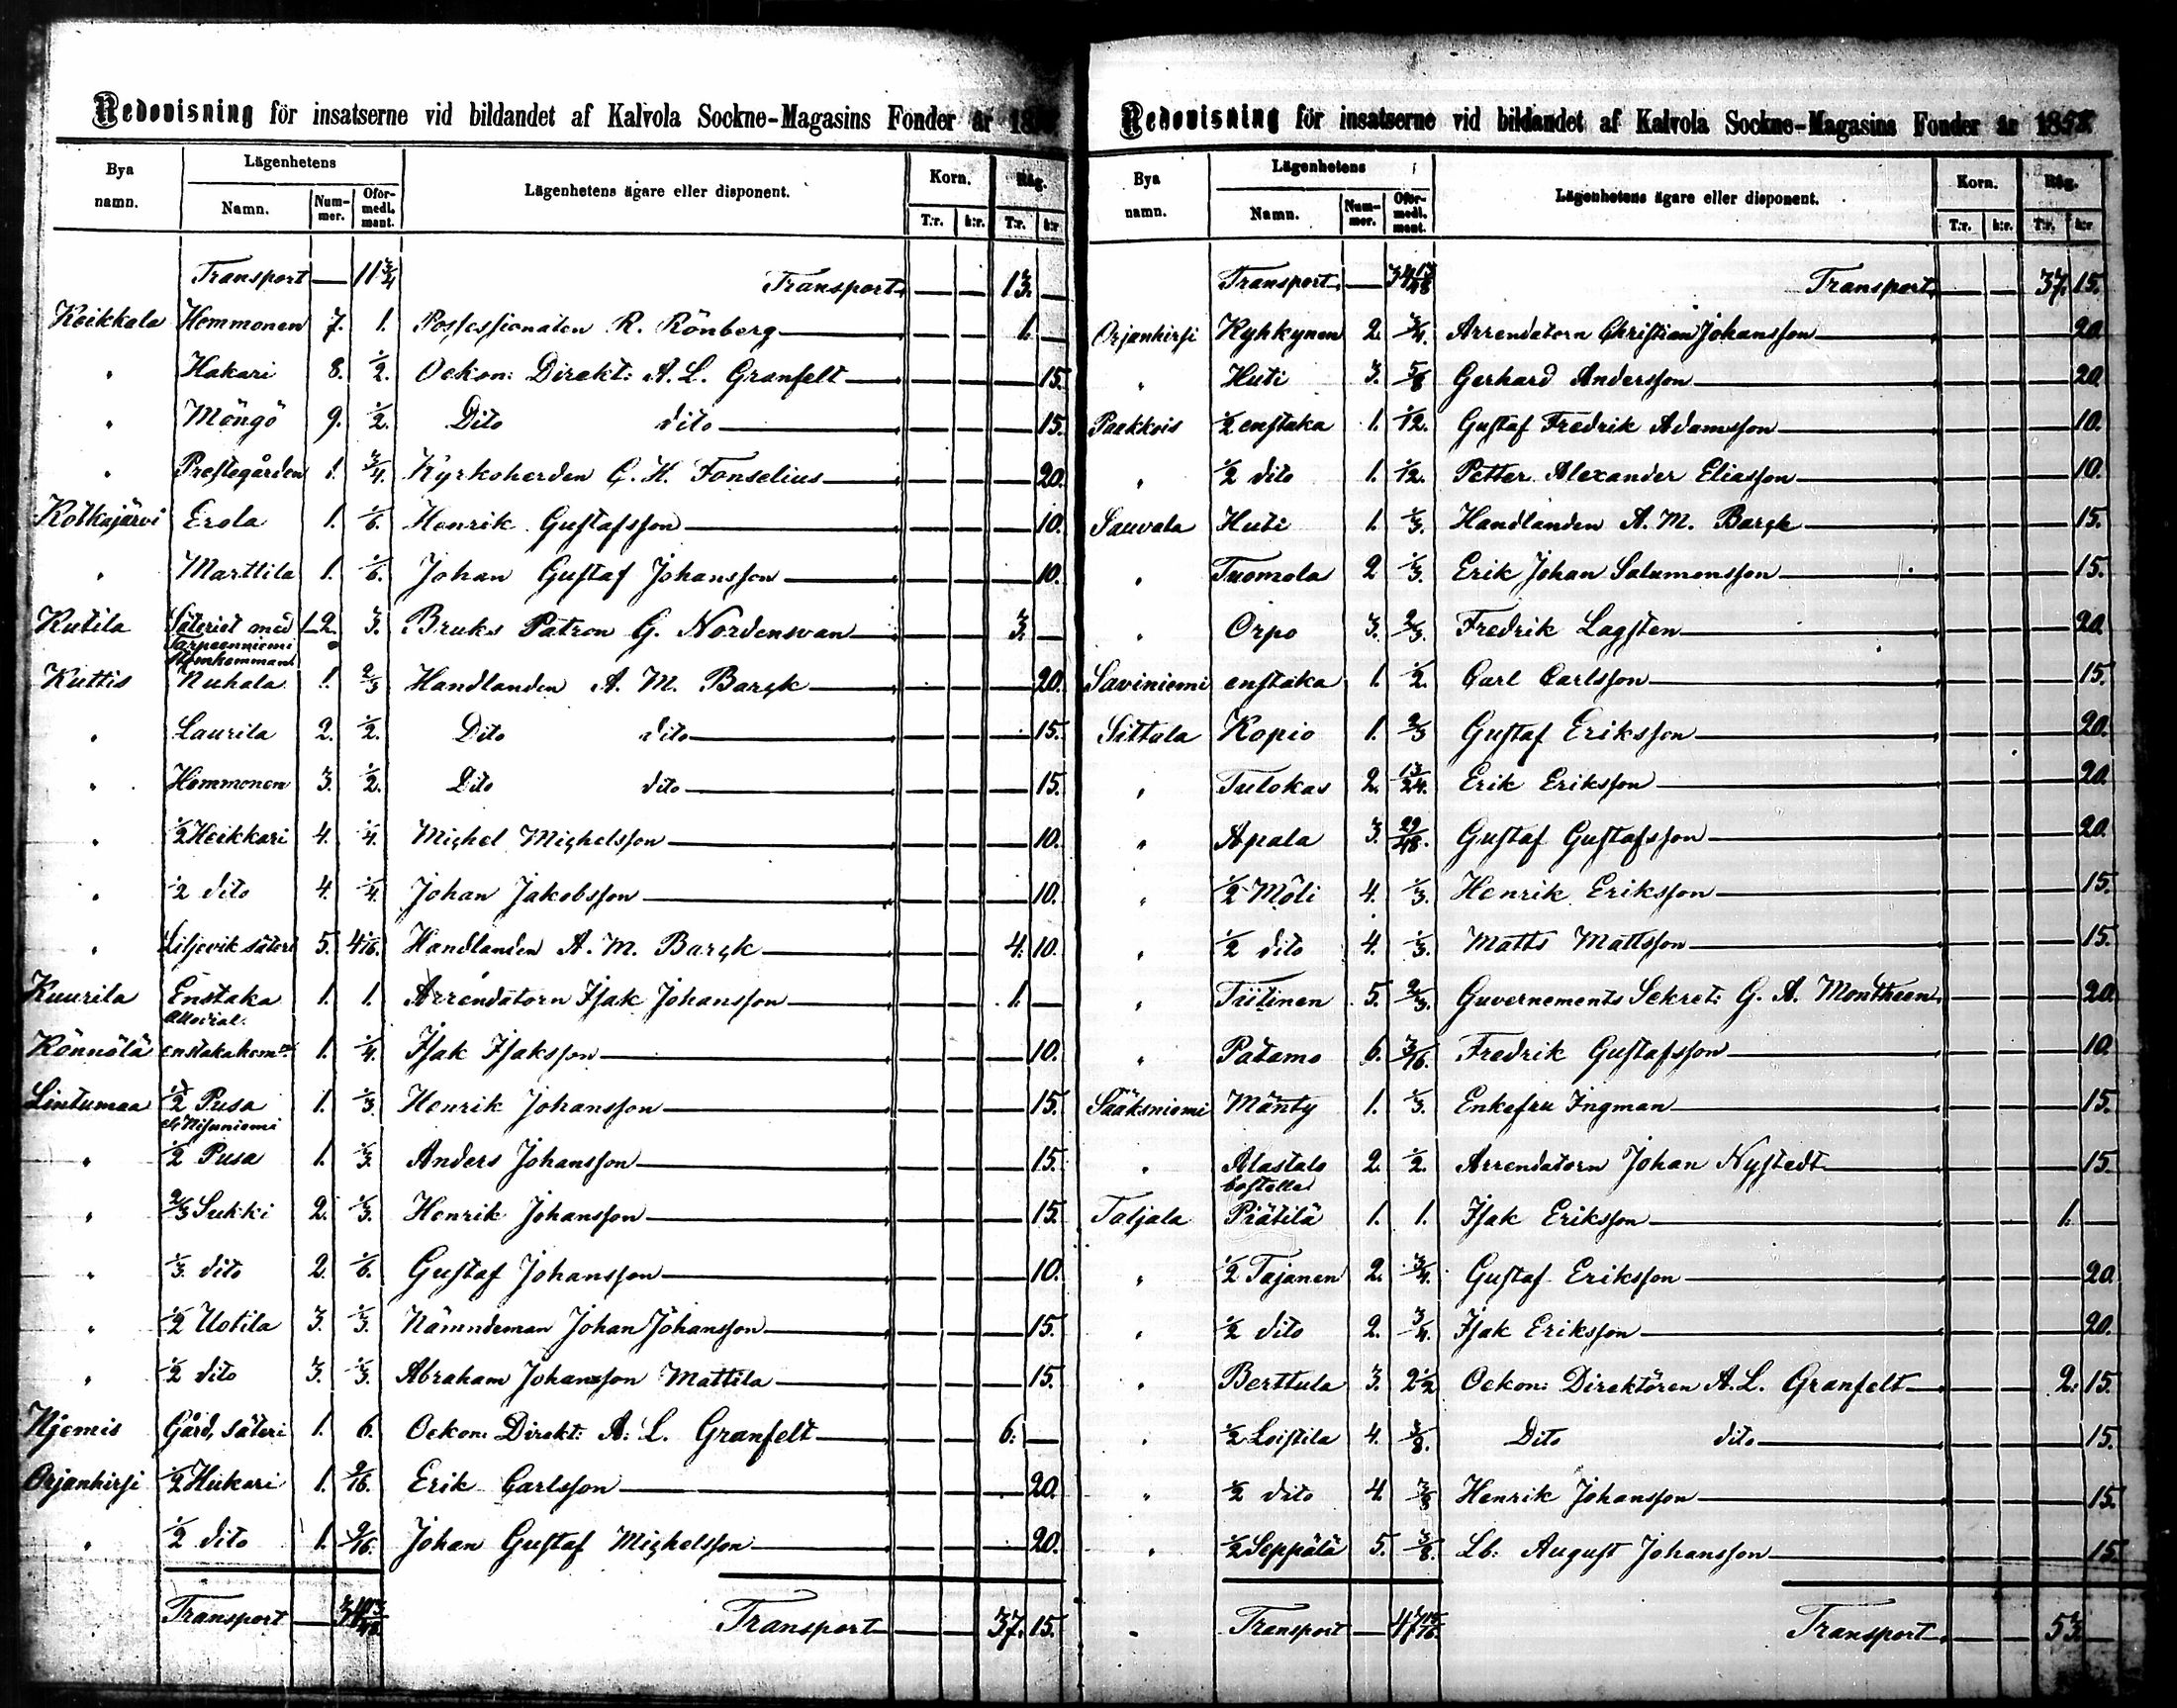 Redovisning för insatserne vid bildandet af Kalvola Sockne-Magasins Fonder år
Bya namn. Lägenhetens Namn. Nummer. Oförmedl. mant. Lägenhetens ägare eller disponent. Korn. T:r. k:r. Råg. T:r. k:r
Transport — 11 3/4 Transport — — 13. —
Keikkala Hommonen 7. 1. Possessionaten R. Rönberg — — 1. —
" Hakari 8. 1/2. Oekon: Direkt: A. L. Granfelt — — — 15.
" Möngö 9. 1/2. Dito dito — — — 15.
" Prestegården 1. 3/4. Kyrkoherden G. H. Fonselius — — — 20.
Kotkajärvi Erola 1. 1/6. Henrik Gustafsson — — — 10.
" Marttila 1. 1/6. Johan Gustaf Johansson — — — 10.
Kutila Säteriet med 1_2. 3. Bruks Patron G. Nordensvan — — 3. —
Tarpeenniemi
Kuttis Nuhala 1. 2/3 Handlanden A. M. Bargk — — — 20.
" Laurila 2. 1/2. Dito dito — — — 15.
" Hommonen 3. 1/2. Dito dito — — — 15.
" 1/2 Heikkari 4. 1/4. Michel Michelsson — — — 10.
" 1/2 dito 4. 1/4. Johan Jakobsson — — — 10.
" Liljevik säteri 5. 4 1/16. Handlanden A. M. Bargk — — 4. 10.
Kuurila Enstaka 1. 1. Arrendatorn Isak Johansson — — 1. —
Allodial.
Könnölä enstaka hem:n 1. 1/4. Isak Isaksson — — — 10.
Lintumaa 1/2 Pusa 1. 1/3. Henrik Johansson — — — 15.
" 1/2 Pusa 1. 1/3. Anders Johansson — — — 15.
" 2/3 Sukki 2. 1/3. Henrik Johansson — — — 15.
" 1/3 dito 2. 1/6. Gustaf Johansson — — — 10.
" 1/2 Uotila 3. 1/3. Nämndeman Johan Johansson — — — 15.
" 1/2 dito 3. 1/3. Abraham Johansson Mattila — — — 15.
Njemis Gård, säteri 1. 6. Oekon: Direkt: A. L. Granfelt — — 6. —
Orjanhirsi 1/2 Hukari 1. 9/16. Erik Carlsson — — — 20.
" 1/2 dito 1. 9/16. Johan Gustaf Michelsson — — — 20.
Transport — Transport — — 37. 15.
Redovisning för insatserne vid bildandet af Kalvola Sockne-Magasins Fonder år 1858
Bya namn. Lägenhetens Namn. Nummer. Oförmedl. mant. Lägenhetens ägare eller disponent. Korn. T:r. k:r. Råg. T:r. k:r
Transport — 34 13/48 Transport — — 37. 15.
Orjanhirsi Kyhkynen 2. 3/4. Arrendatorn Christian Johansson — — — 20.
" Huti 3. 5/8 Gerhard Andersson — — — 20.
Paakkois 1/2 enstaka 1. 1/12. Gustaf Fredrik Adamsson — — — 10.
" 1/2 dito 1. 1/12. Petter Alexander Eliasson — — — 10.
Sauvala Huti 1. 1/3. Handlanden A. M. Bargk — — — 15.
" Tuomola 2 1/3. Erik Johan Salumonsson — — — 15.
" Orpo 3. 2/3. Fredrik Lagsten — — — 20.
Saviniemi enstaka 1. 1/2. Carl Carlsson — — — 15.
Sittala Kopio 1. 2/3 Gustaf Eriksson — — — 20.
" Tulokas 2. 13/24. Erik Eriksson — — — 20.
" Apala 3. 29/48. Gustaf Gustafsson — — — 20.
" 1/2 Möli 4. 1/3. Henrik Eriksson — — — 15.
" 1/2 dito 4. 1/3. Matts Mattsson — — — 15.
" Tiitinen 5. 2/3. Guvernements Sekret: G. A. Montheen — — — 20
" Patamo 6. 3/16. Fredrik Gustafsson — — — 10.
Sääksniemi Mänty 1. 1/3. Enkefru Ingman — — — 15.
" Alastalo 2. 1/2. Arrendatorn Johan Nystedt — — — 15.
bostelle
Taljala Piätilä 1. 1. Isak Eriksson — — 1. —
" 1/2 Tajanen 2. 3/4. Gustaf Eriksson — — — 20.
" 1/2 dito 2. 3/4. Isak Eriksson — — — 20.
" Berttula 3. 2 1/2 Oekon: Direktören A. L. Granfelt — — 2. 15.
" 1/2 Loistila 4. 3/8. Dito dito — — — 15.
" 1/2 dito 4 3/8 Henrik Johansson — — — 15.
" 1/2 Seppälä 5. 3/8. Lb: August Johansson — — — 15.
" Transport — 47 15/16. Transport — — 53 —